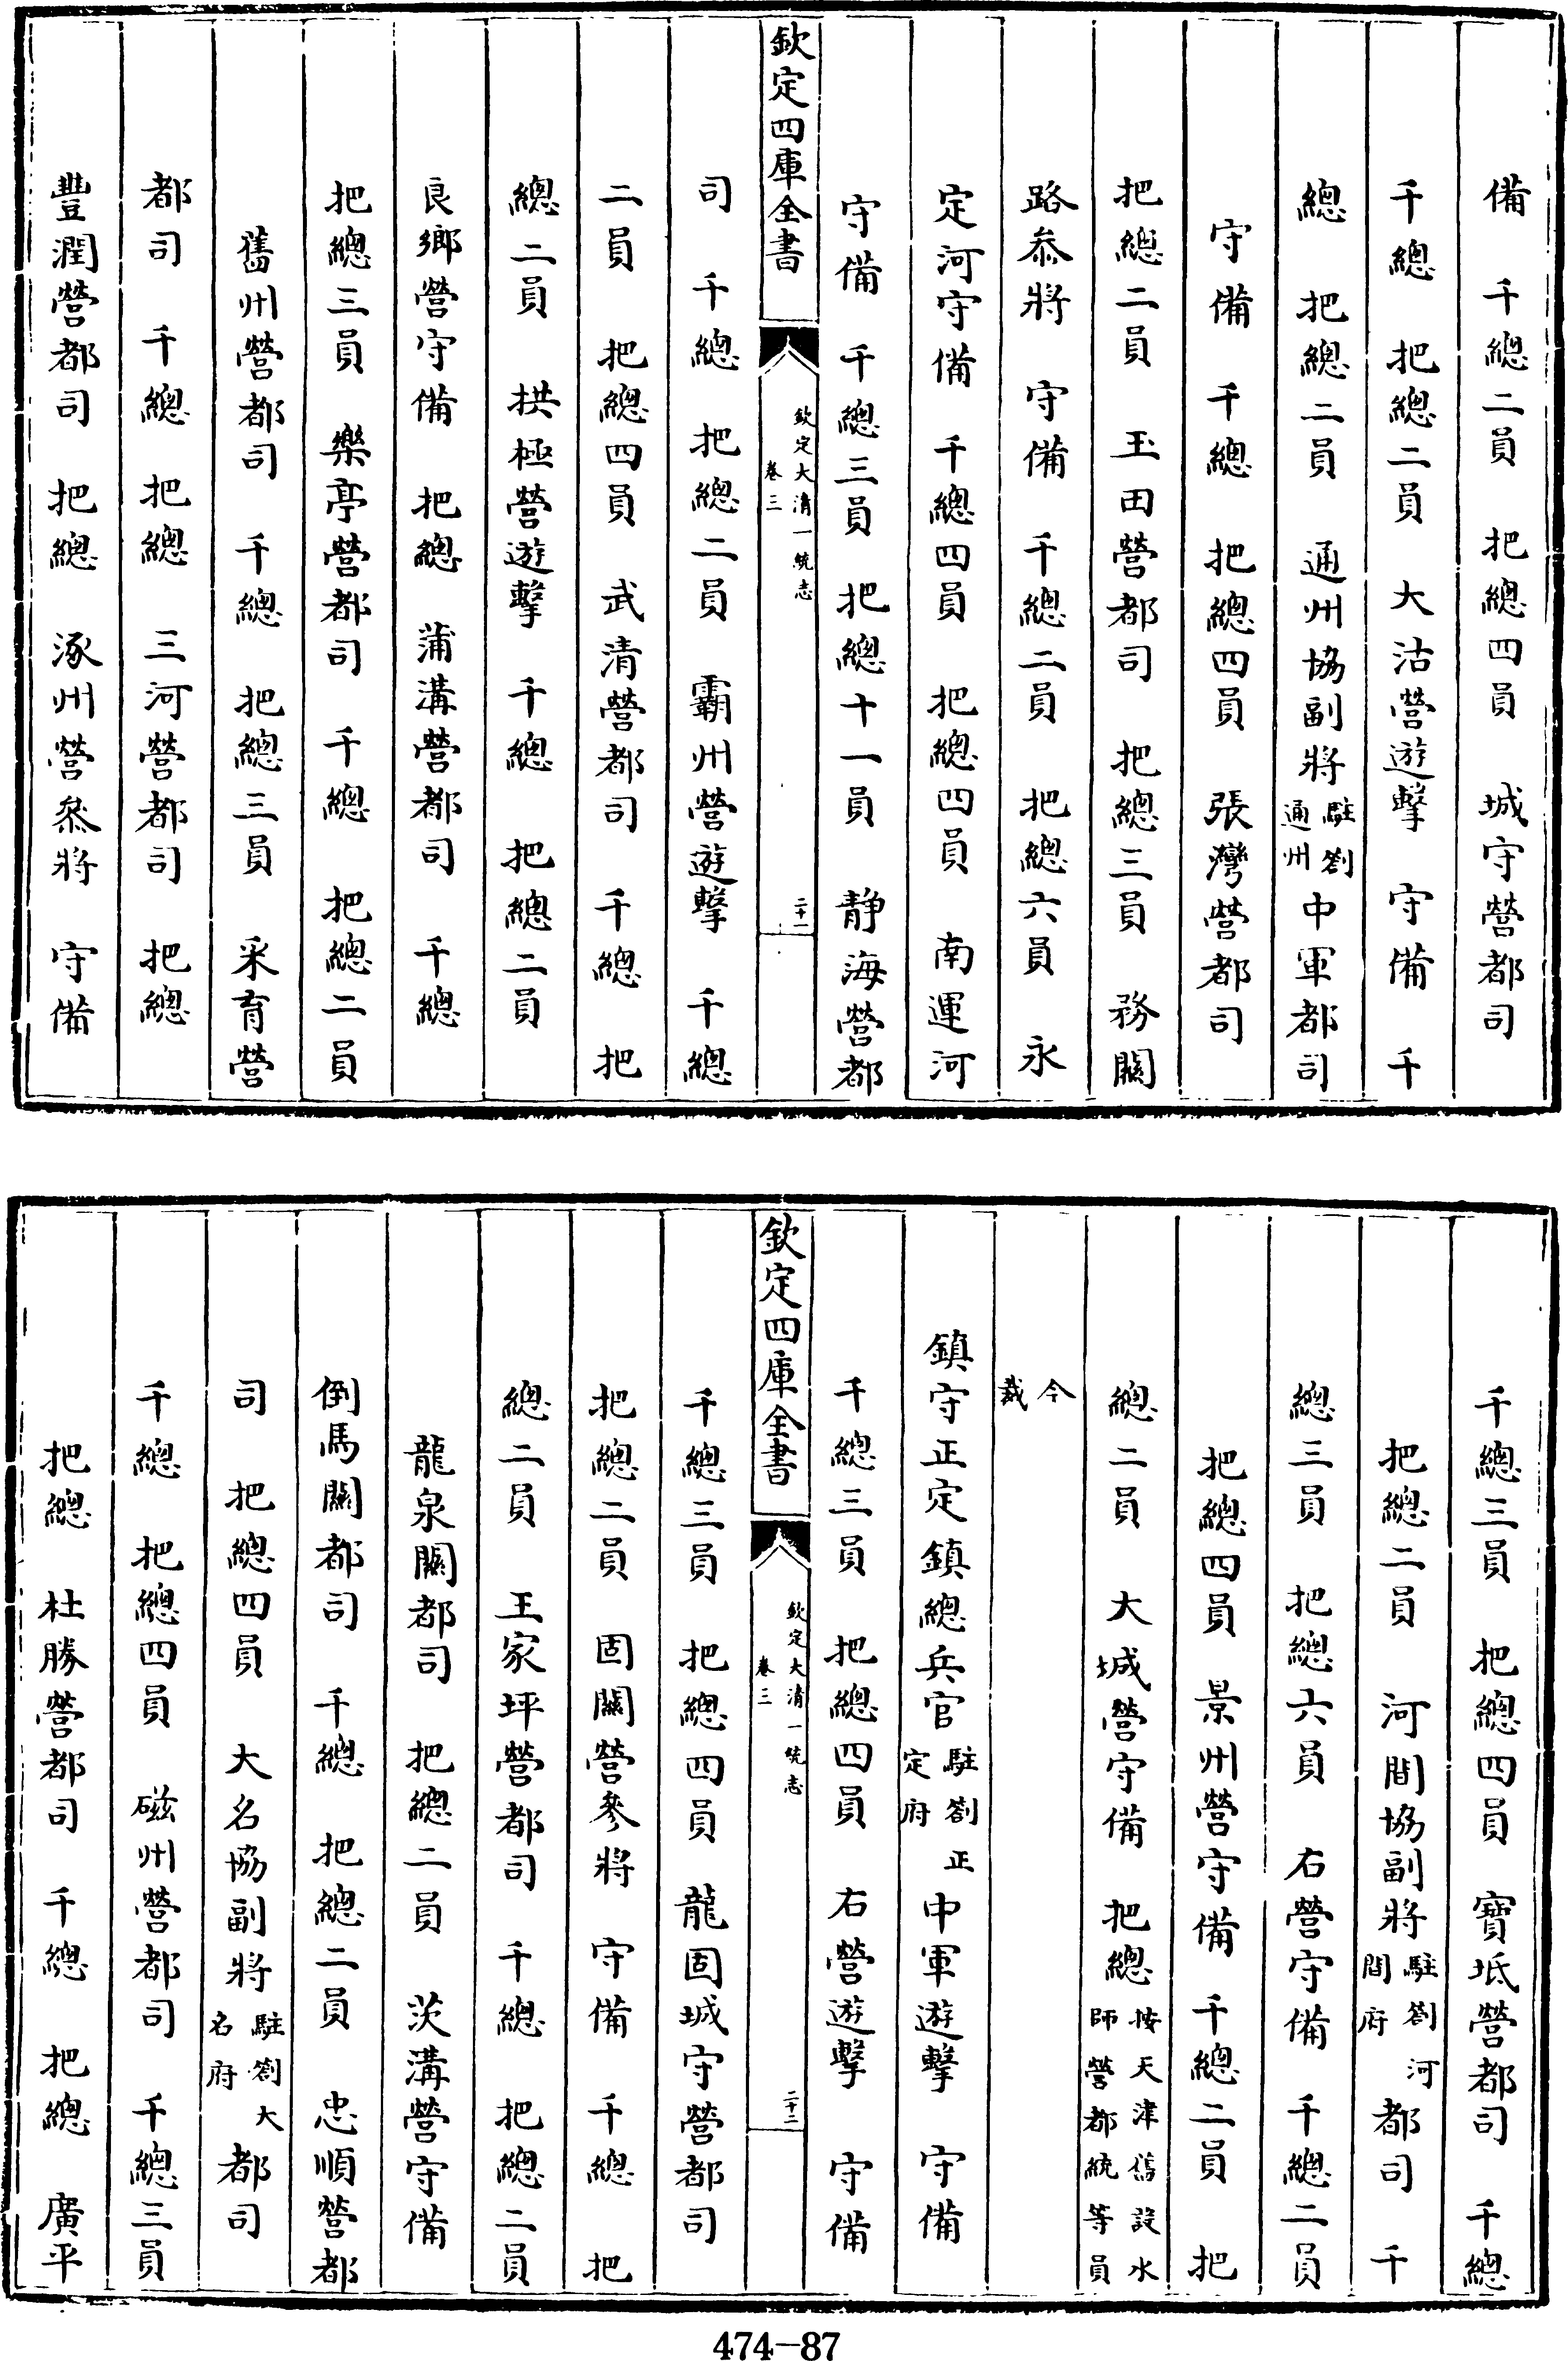 備　千總二員　把總四員　城守營都司
千總　把總二員　大沽營遊擊　守備　千
總　把總二員　通州協副將駐劄通州中軍都司
守備　千總　把總四員　張灣營都司
把總二員　玉田營都司　把總三員　務關
路叅將　守備　千總二員　把總六員　永
定河守備　千總四員　把總四員　南運河
守備　千總三員　把總十一員　靜海營都
欽定四庫全書
欽定大清一統志
卷三
二十一
司　千總　把總二員　霸州營遊擊　千總
二員　把總四員　武清營都司　千總　把
總二員　拱極營遊擊　千總　把總二員
良鄉營守備　把總　蒲溝營都司　千總
把總三員　樂亭營都司　千總　把總二員
舊州營都司　千總　把總三員　采育營
都司　千總　把總　三河營都司　把總
豐潤營都司　把總　涿州營叅將　守備
千總三員　把總四員　寶坻營都司　千總
把總二員　河間協副將駐劄河間府都司　千
總三員　把總六員　右營守備　千總二員
把總四員　景州營守備　千總二員　把
總二員　大城營守備　把總按天津舊設水師營都統等員
今裁
鎮守正定鎮總兵官駐劄正定府中軍遊擊　守備
千總三員　把總四員　右營遊擊　守備
欽定四庫全書
欽定大清一統志
卷三
二十二
千總三員　把總四員　龍固城守營都司
把總二員　固關營參將　守備　千總　把
總二員　王家坪營都司　千總　把總二員
龍泉關都司　把總二員　茨溝營守備
倒馬關都司　千總　把總二員　忠順營都
司　把總四員　大名協副將駐劄大名府都司
千總　把總四員　磁州營都司　千總三員
把總　杜勝營都司　千總　把總　廣平
474-87